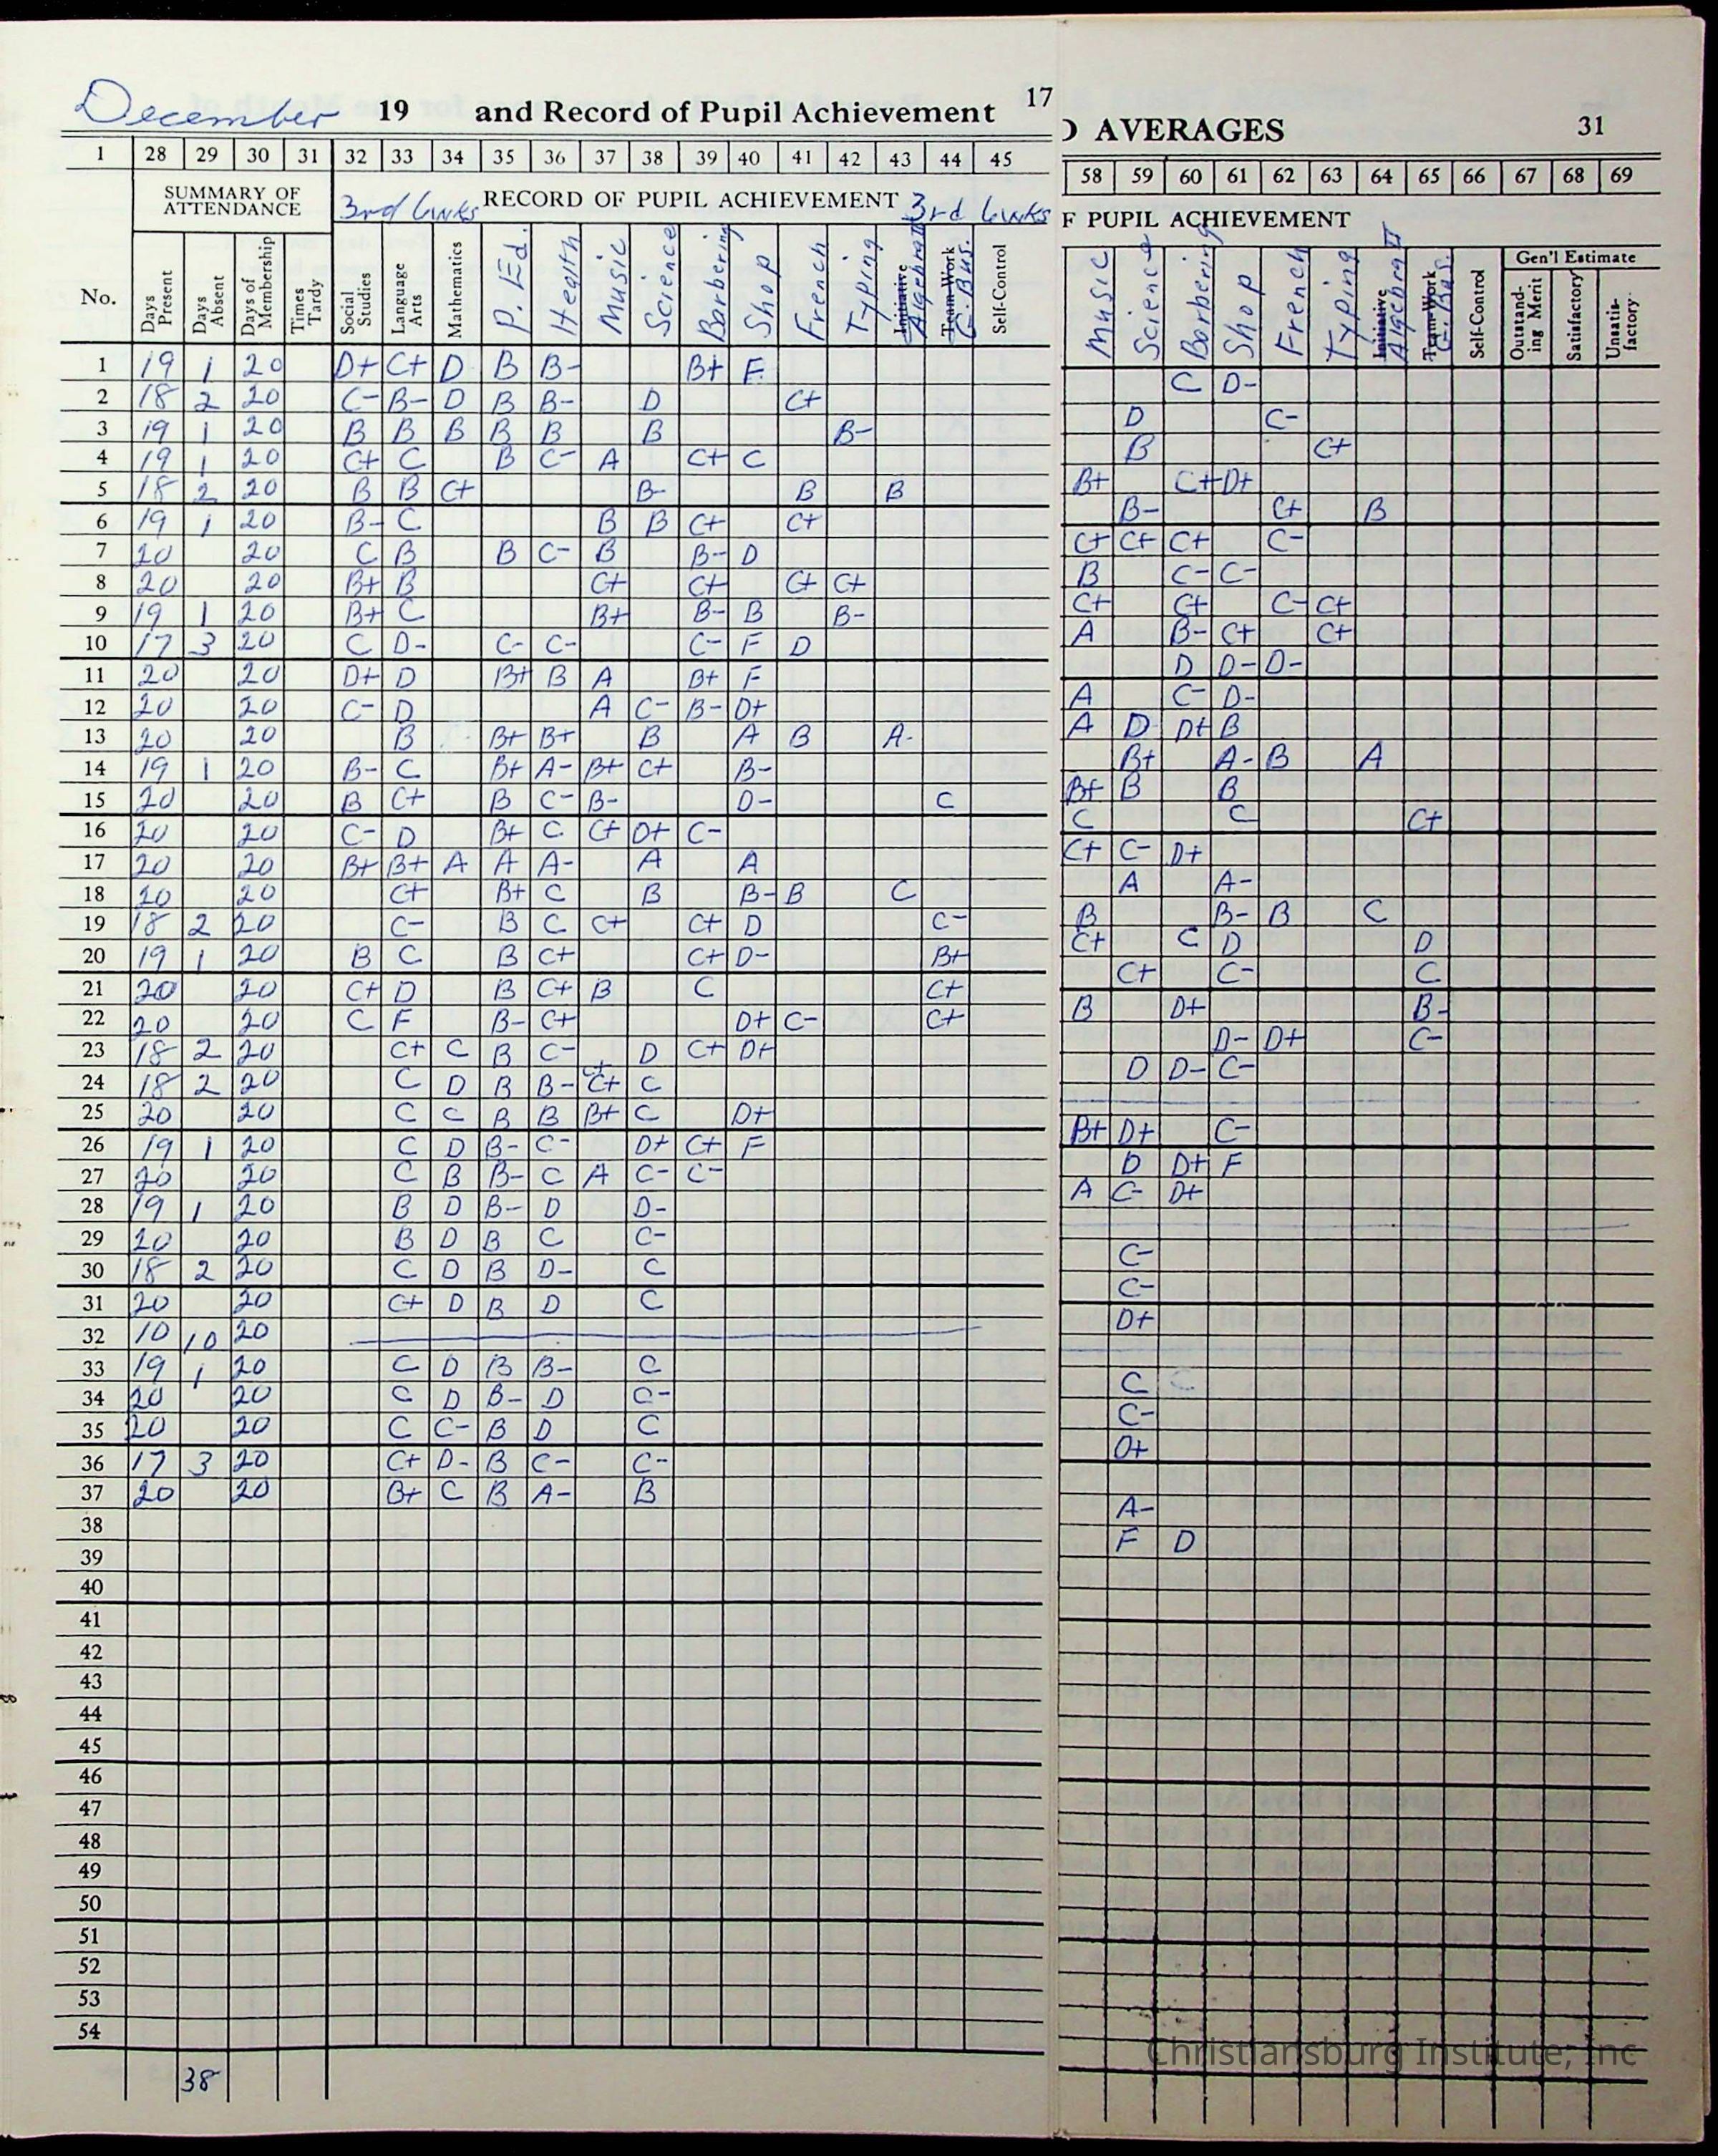 December 19 and Record of Pupil Achievement 17
1 28 29 30 31 32 33 34 35 36 37 38 39 40 41 42 43 44 45
SUMMARY OF ATTENDANCE 3rd 6wks RECORD OF PUPIL ACHIEVEMENT 3rd 6wks
No. Days Present Days Absent Days of Membership Times Tardy Social Studies Language Arts Mathematics P. Ed. Health Music Science Barbering Shop French Typing Initiative Algebra II Team-Work G. Bus. Self-Control
1 19 1 20 D+ C+ D B B- B+ F
2 18 2 20 C- B- D B B- D C+
3 19 1 20 B B B B B B B-
4 19 1 20 C+ C B C- A C+ C
5 18 2 20 B B C+ B- B B
6 19 1 20 B- C B B C+ C+
7 20 20 C B B C- B B- D
8 20 20 B+ B C+ C+ C+ C+
9 19 1 20 B+ C B+ B- B B-
10 17 3 20 C D- C- C- C- F D
11 20 20 D+ D B+ B A B+ F
12 20 20 C- D A C- B- D+
13 20 20 B B+ B+ B A B A-
14 19 1 20 B- C B+ A- B+ C+ B-
15 20 20 B C+ B C- B- D- C
16 20 20 C- D B+ C C+ D+ C-
17 20 20 B+ B+ A A A- A A
18 20 20 C+ B+ C B B- B C
19 18 2 20 C- B C C+ C+ D C-
20 19 1 20 B C B C+ C+ D- B+
21 20 20 C+ D B C+ B C C+
22 20 20 C F B- C+ D+ C- C+
23 18 2 20 C+ C B C- D C+ D+
24 18 2 20 C D B B- C+ C
25 20 20 C C B B B+ C D+
26 19 1 20 C D B- C- D+ C+ F
27 20 20 C B B- C A C- C-
28 19 1 20 B D B- D D-
29 20 20 B D B C C-
30 18 2 20 C D B D- C
31 20 20 C+ D B D C
32 10 10 20
33 19 1 20 C D B B- C
34 20 20 C D B- D C-
35 20 20 C C- B D C
36 17 3 20 C+ D- B C- C-
37 20 20 B+ C B A- B
38
39
40
41
42
43
44
45
46
47
48
49
50
51
52
53
54
38
D AVERAGES 31
58 59 60 61 62 63 64 65 66 67 68 69
F PUPIL ACHIEVEMENT
Music Science Barbering Shop French Typing Initiative Algebra II Team-Work G. Bus. Self-Control Gen'l Estimate Outstanding Merit Satisfactory Unsatisfactory
C D-
D C-
B C+
B+ C+ D+
B- C+ B
C+ C+ C+ C-
B C- C-
C+ C+ C- C+
A B- C+ C+
D D- D-
A C- D-
A D D+ B
B+ A- B A
B+ B B
C C C+
C+ C- D+
A A-
B B- B C
C+ C D D
C+ C- C
B D+ B-
D- D+ C-
D D- C-
B+ D+ C-
D D+ F
A C- D+
C-
C-
D+
C
C-
D+
A-
F D
Christiansburg Institute, Inc